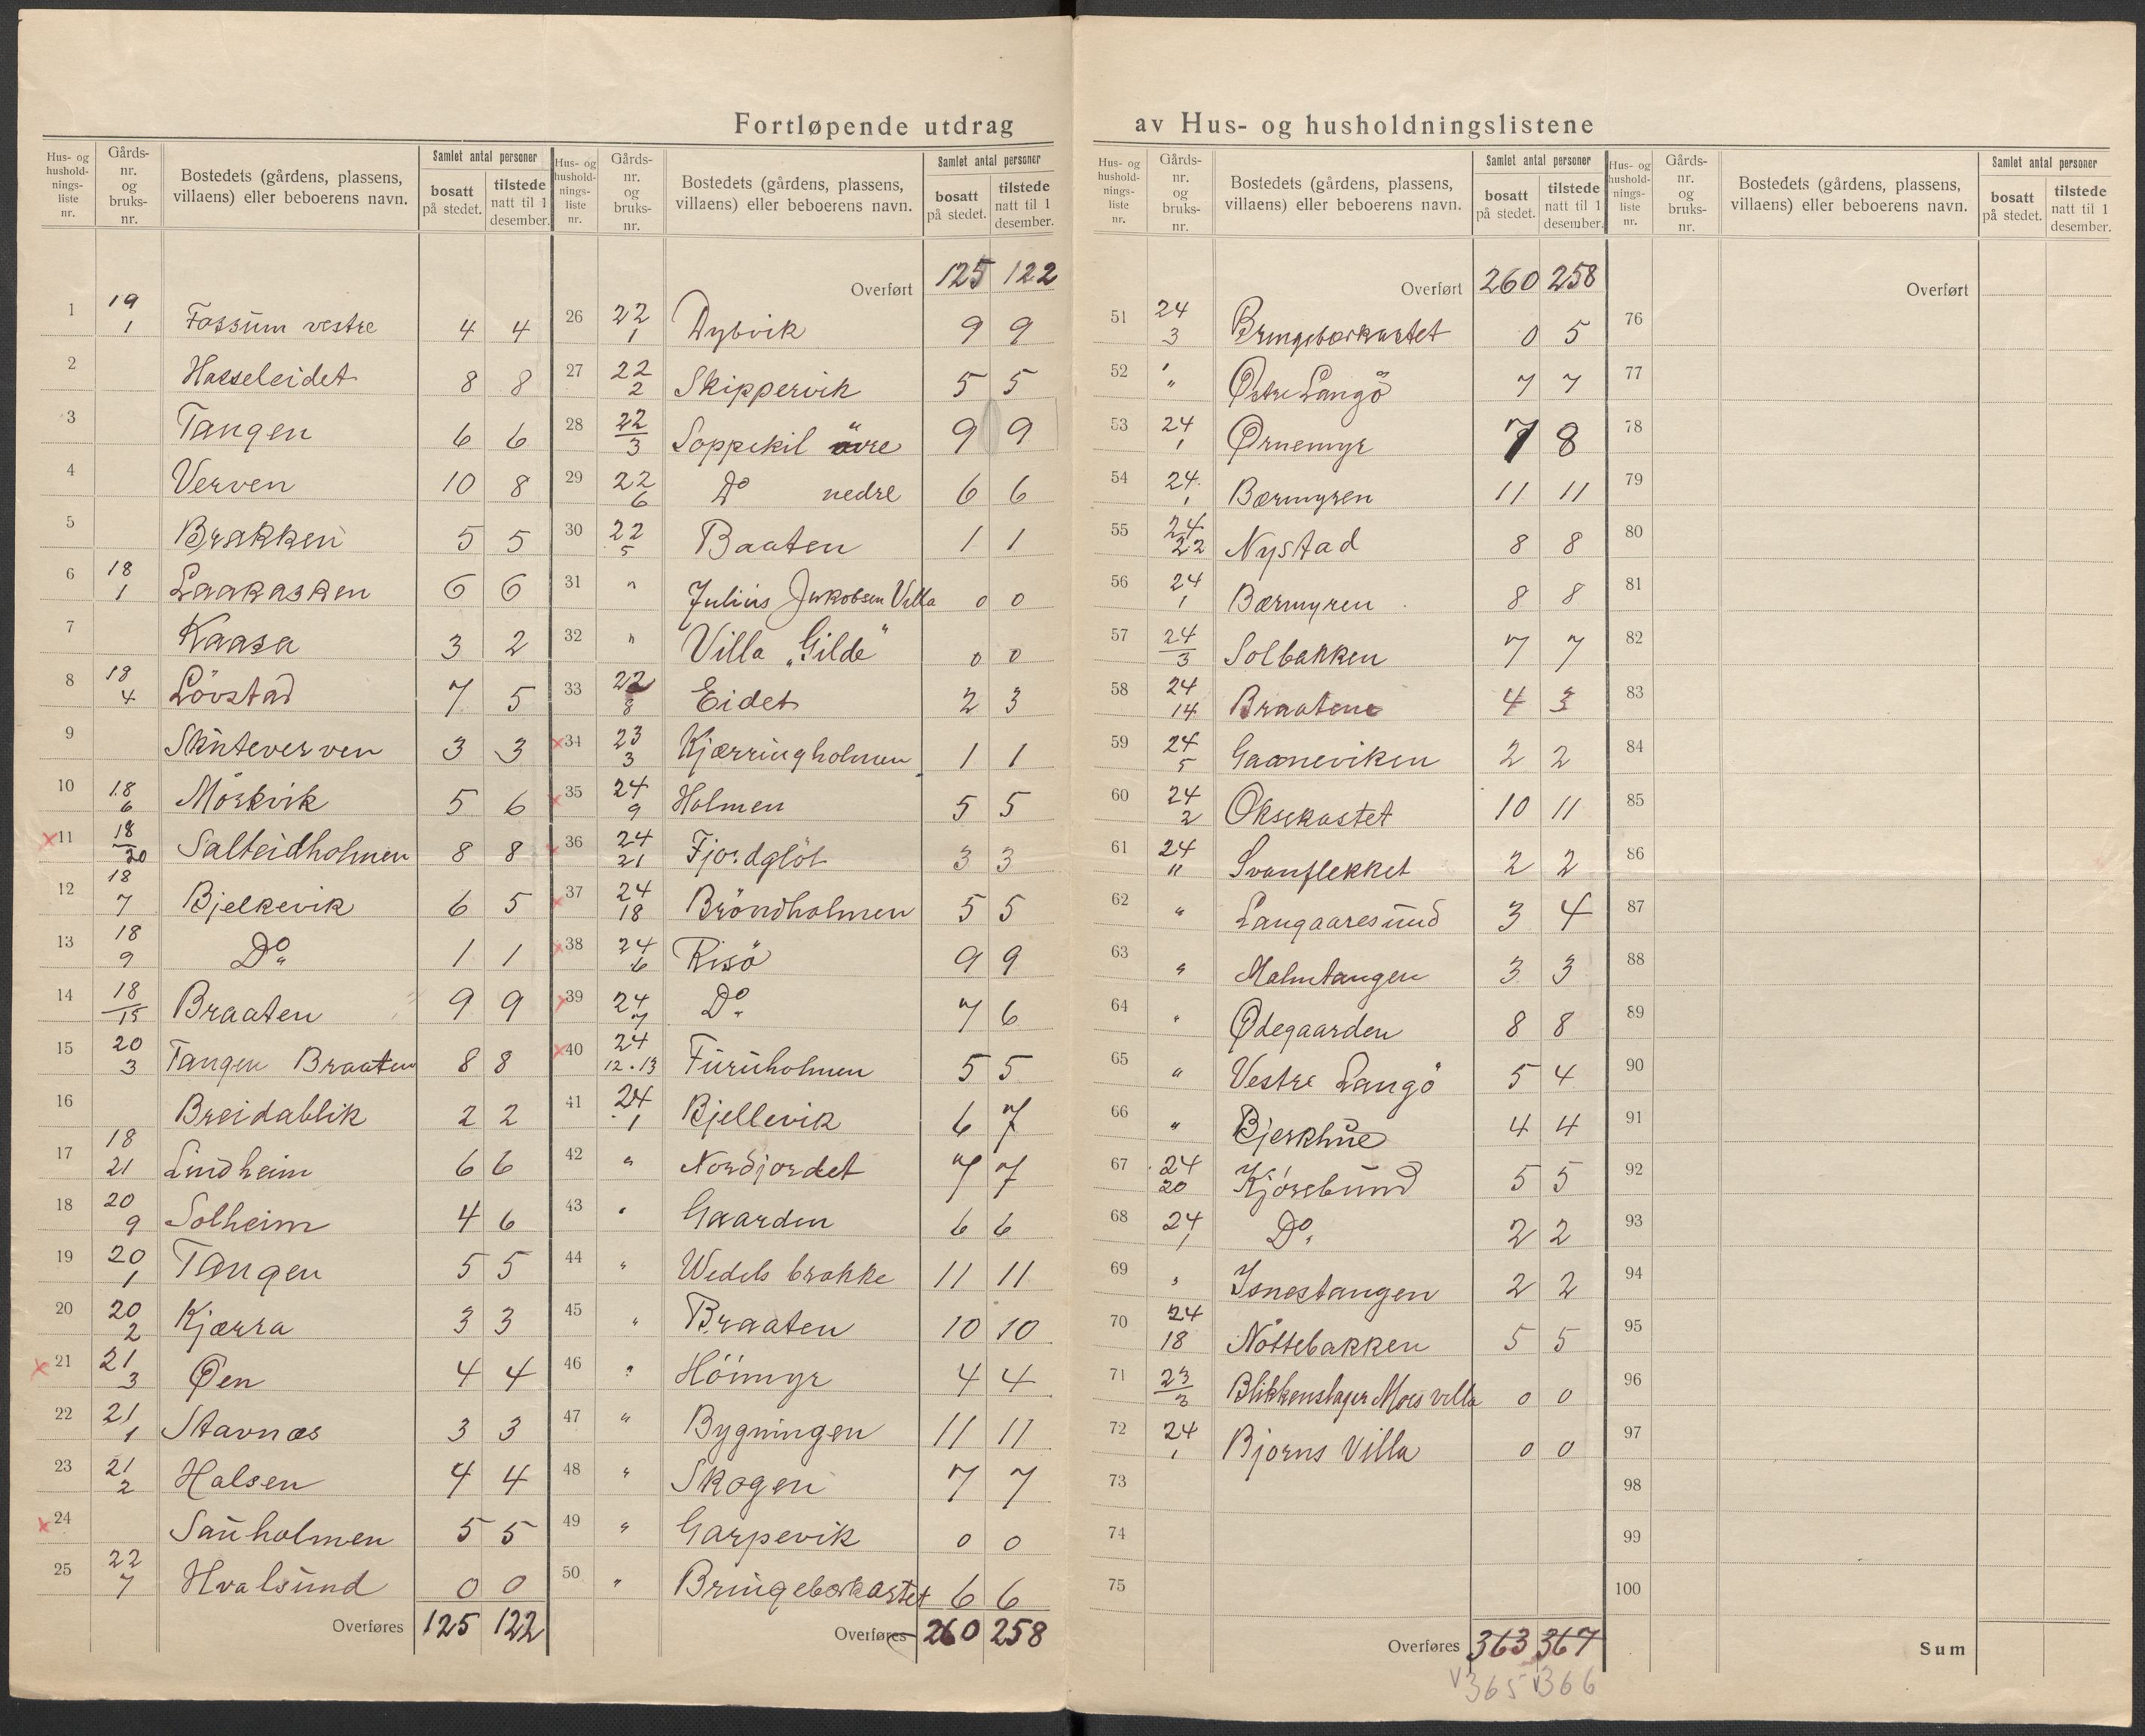 Fortløpende utdrag av Hus- og husholdningslistene
Hus- og husholdningsliste nr. | Gårds-nr. og bruks-nr. | Bostedets (gårdens, plassens, villaens) eller beboerens navn. | Samlet antal personer | bosatt på stedet. | tilstede natt til 1 desember.
1 19/1 Fossum vestre 4 4
2 Hasseleidet 8 8
3 Tangen 6 6
4 Verven 10 8
5 Brækken 5 5
6 18/1 Laakasken 6 6
7 Kaasa 3 2
8 18/4 Lövstad 7 5
9 Skuteverven 3 3
10 18/6 Mörkvik 5 6
x 11 18/20 Salteidholmen 8 8
12 18/7 Bjelkevik 6 5
13 18/9 Do 1 1
14 18/15 Braaten 9 9
15 20/3 Tangen Braaten 8 8
16 Breidablik 2 2
17 18/21 Lindheim 6 6
18 20/9 Solheim 4 6
19 20/1 Tangen 5 5
20 20/2 Kjærra 3 3
x 21 21/3 Øen 4 4
22 21/1 Stavnæs 3 3
23 21/2 Halsen 4 4
x 24 Sauholmen 5 5
25 22/7 Hvalsund 0 0
Overføres 125 122
Hus- og husholdningsliste nr. | Gårds-nr. og bruks-nr. | Bostedets (gårdens, plassens, villaens) eller beboerens navn. | Samlet antal personer | bosatt på stedet. | tilstede natt til 1 desember.
Overført 125 122
26 22/1 Dybvik 9 9
27 22/2 Skippervik 5 5
28 22/3 Soppekil övre 9 9
29 22/6 Do nedre 6 6
30 22/5 Baaten 1 1
31 " Julius Jakobsen Villa 0 0
32 " Villa „Gilde" 0 0
33 22/8 Eidet 2 3
x 34 23/3 Kjærringholmen 1 1
x 35 24/9 Holmen 5 5
x 36 24/21 Fjordglöt 3 3
x 37 24/18 Bröndholmen 5 5
x 38 24/6 Risö 9 9
x 39 24/7 Do 7 6
x 40 24/12.13 Furuholmen 5 5
41 24/1 Bjellevik 6 7
42 " Nordjordet 7 7
43 " Gaarden 6 6
44 " Wedels brakke 11 11
45 " Braaten 10 10
46 " Höimyr 4 4
47 " Bygningen 11 11
48 " Skogen 7 7
49 " Garpevik 0 0
50 " Bringebærkastet 6 6
Overføres 260 258
Hus- og husholdningsliste nr. | Gårds-nr. og bruks-nr. | Bostedets (gårdens, plassens, villaens) eller beboerens navn. | Samlet antal personer | bosatt på stedet. | tilstede natt til 1 desember.
Overført 260 258
51 24/3 Bringebærkastet 0 5
52 " Østre Langö 7 7
53 24/1 Ørnemyr 7 8
54 24/1 Bærmyren 11 11
55 24/22 Nystad 8 8
56 24/1 Bærmyren 8 8
57 24/3 Solbakken 7 7
58 24/14 Braatene 4 3
59 24/5 Gaaneviken 2 2
60 24/2 Oksekastet 10 11
61 24/11 Svanflekket 2 2
62 " Langaaresund 3 4
63 " Malmtangen 3 3
64 " Ødegaarden 8 8
65 " Vestre Langö 5 4
66 " Bjerkhue 4 4
67 24/20 Kjörsbund 5 5
68 24/1 Do 2 2
69 " Isnestangen 2 2
70 24/18 Nöttebakken 5 5
71 23/3 Blikkenslager Moes villa 0 0
72 24/1 Bjorns Villa 0 0
73
74
75
Overføres 363 367
v365 v366
Hus- og husholdningsliste nr. | Gårds-nr. og bruks-nr. | Bostedets (gårdens, plassens, villaens) eller beboerens navn. | Samlet antal personer | bosatt på stedet. | tilstede natt til 1 desember.
Overført
76
77
78
79
80
81
82
83
84
85
86
87
88
89
90
91
92
93
94
95
96
97
98
99
100
Sum